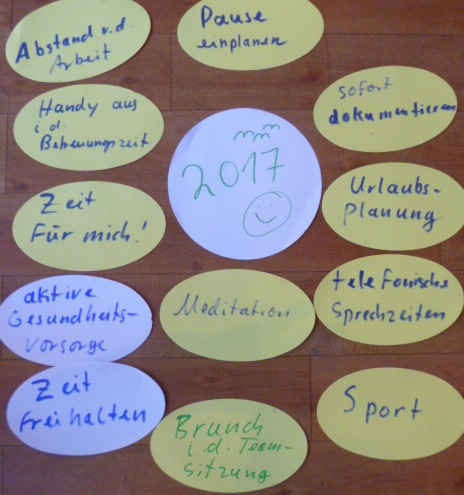 Abstand v.d.
Arbeit
Pause
einplanen
Handy aus
i.d.
Betreuungszeit
sofort
dokumentieren
2017
Zeit
Für mich!
Urlaubs-
Planung
aktive
Gesundheits-
vorsorge
Meditation
telefonische
Sprechzeiten
Zeit
freihalten
Brunch
i.d. Team-
sitzung
Sport